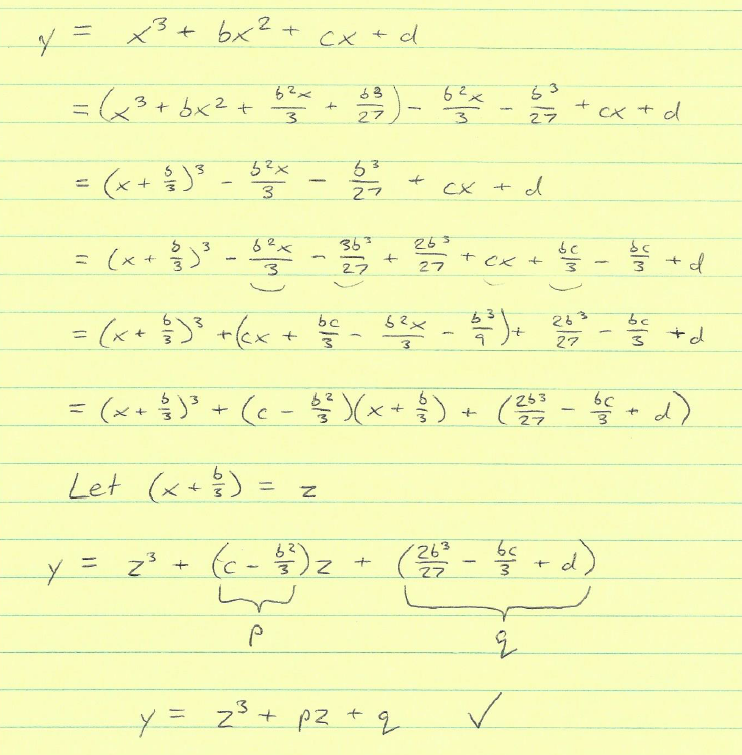 y = x³ + bx² + cx + d
= (x³ + bx² + b²x/3 + b³/27) - b²x/3 - b³/27 + cx + d
= (x + b/3)³ - b²x/3 - b³/27 + cx + d
= (x + b/3)³ - b²x/3 - 3b³/27 + 2b³/27 + cx + bc/3 - bc/3 + d
= (x + b/3)³ + (cx + bc/3 - b²x/3 - b³/9) + 2b³/27 - bc/3 + d
= (x + b/3)³ + (c - b²/3)(x + b/3) + (2b³/27 - bc/3 + d)
Let (x + b/3) = z
y = z³ + (c - b²/3)z + (2b³/27 - bc/3 + d)
p q
y = z³ + pz + q ✓